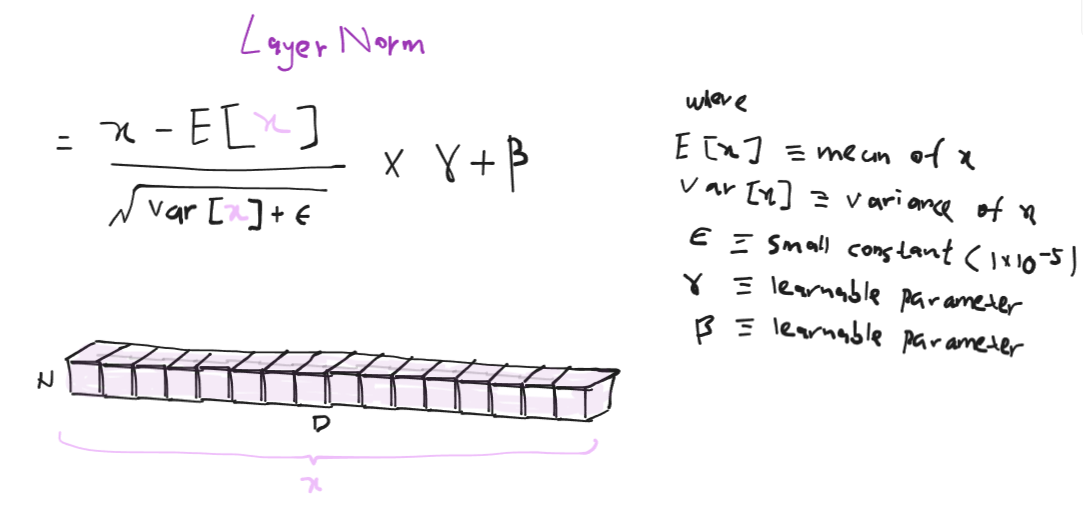 Layer Norm
= x - E[x]
√var[x]+ϵ
× γ+β
where
E[x] ≡ mean of x
var[x] ≡ variance of x
ϵ ≡ small constant (1×10⁻⁵)
γ ≡ learnable parameter
β ≡ learnable parameter
N
D
x